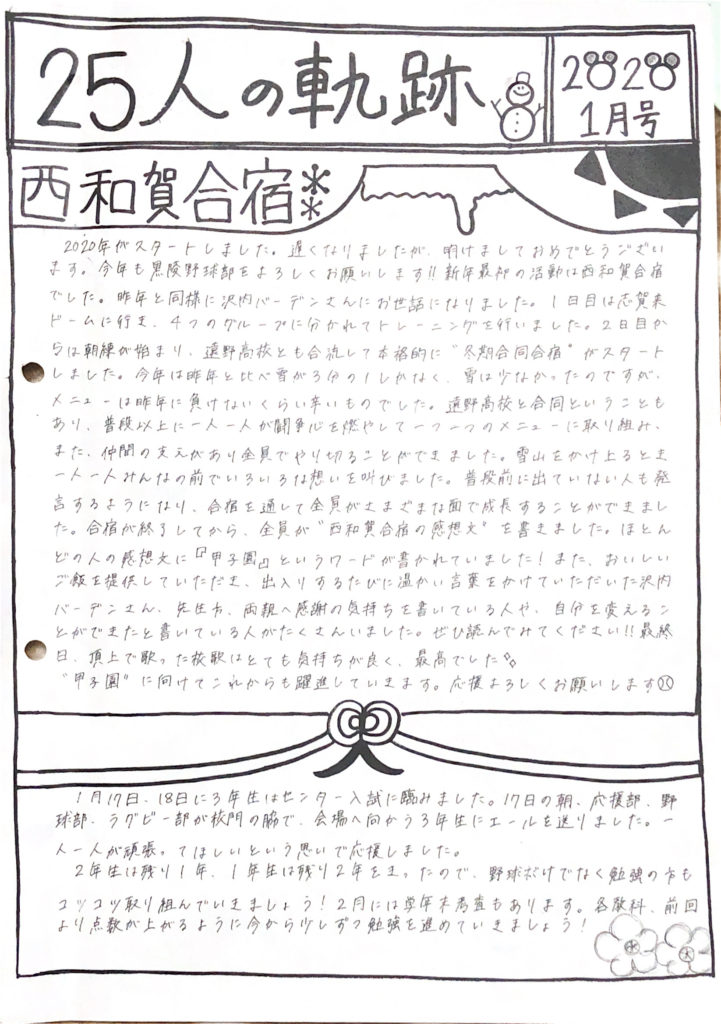 25人の軌跡
2020
1月号
西和賀合宿
2020年がスタートしました。遅くなりましたが、明けましておめでとうござい
ます。今年も黒陵野球部をよろしくお願いします!!新年最初の活動は西和賀合宿
でした。昨年と同様に沢内バーデンさんにお世話になりました。1日目は志賀来
ドームに行き、4つのグループに分かれてトレーニングを行いました。2日目か
らは朝練が始まり、遠野高校とも合流して本格的に"冬期合同合宿"がスタート
しました。今年は昨年と比べ雪が3分の1しかなく、雪は少なかったのですが、
メニューは昨年に負けないくらい辛いものでした。遠野高校と合同ということも
あり、普段以上に一人一人が闘争心を燃やして一つ一つのメニューに取り組み、
また、仲間の支えがあり全員でやり切ることができました。雪山をかけ上るとき
一人一人みんなの前でいろいろな想いを叫びました。普段前に出ていない人も発
言するようになり、合宿を通して全員がさまざまな面で成長することができまし
た。合宿が終了してから、全員が"西和賀合宿の感想文"を書きました。ほとん
どの人の感想文に『甲子園』というワードが書かれていました!また、おいしい
ご飯を提供していただき、出入りするたびに温かい言葉をかけていただいた沢内
バーデンさん、先生方、両親へ感謝の気持ちを書いている人や、自分を変えるこ
とができたと書いている人がたくさんいました。ぜひ読んでみてください!!最終
日、頂上で歌った校歌はとても気持ちが良く、最高でした
"甲子園"に向けてこれからも躍進していきます。応援よろしくお願いします
1月17日、18日に3年生はセンター入試に臨みました。17日の朝、応援部、野
球部、ラグビー部が校門の脇で、会場へ向かう3年生にエールを送りました。一
人一人が頑張ってほしいという思いで応援しました。
2年生は残り1年、1年生は残り2年をきったので、野球だけでなく勉強の方も
コツコツ取り組んでいきましょう!2月には学年末考査もあります。各教科、前回
より点数が上がるように今から少しずつ勉強を進めていきましょう!